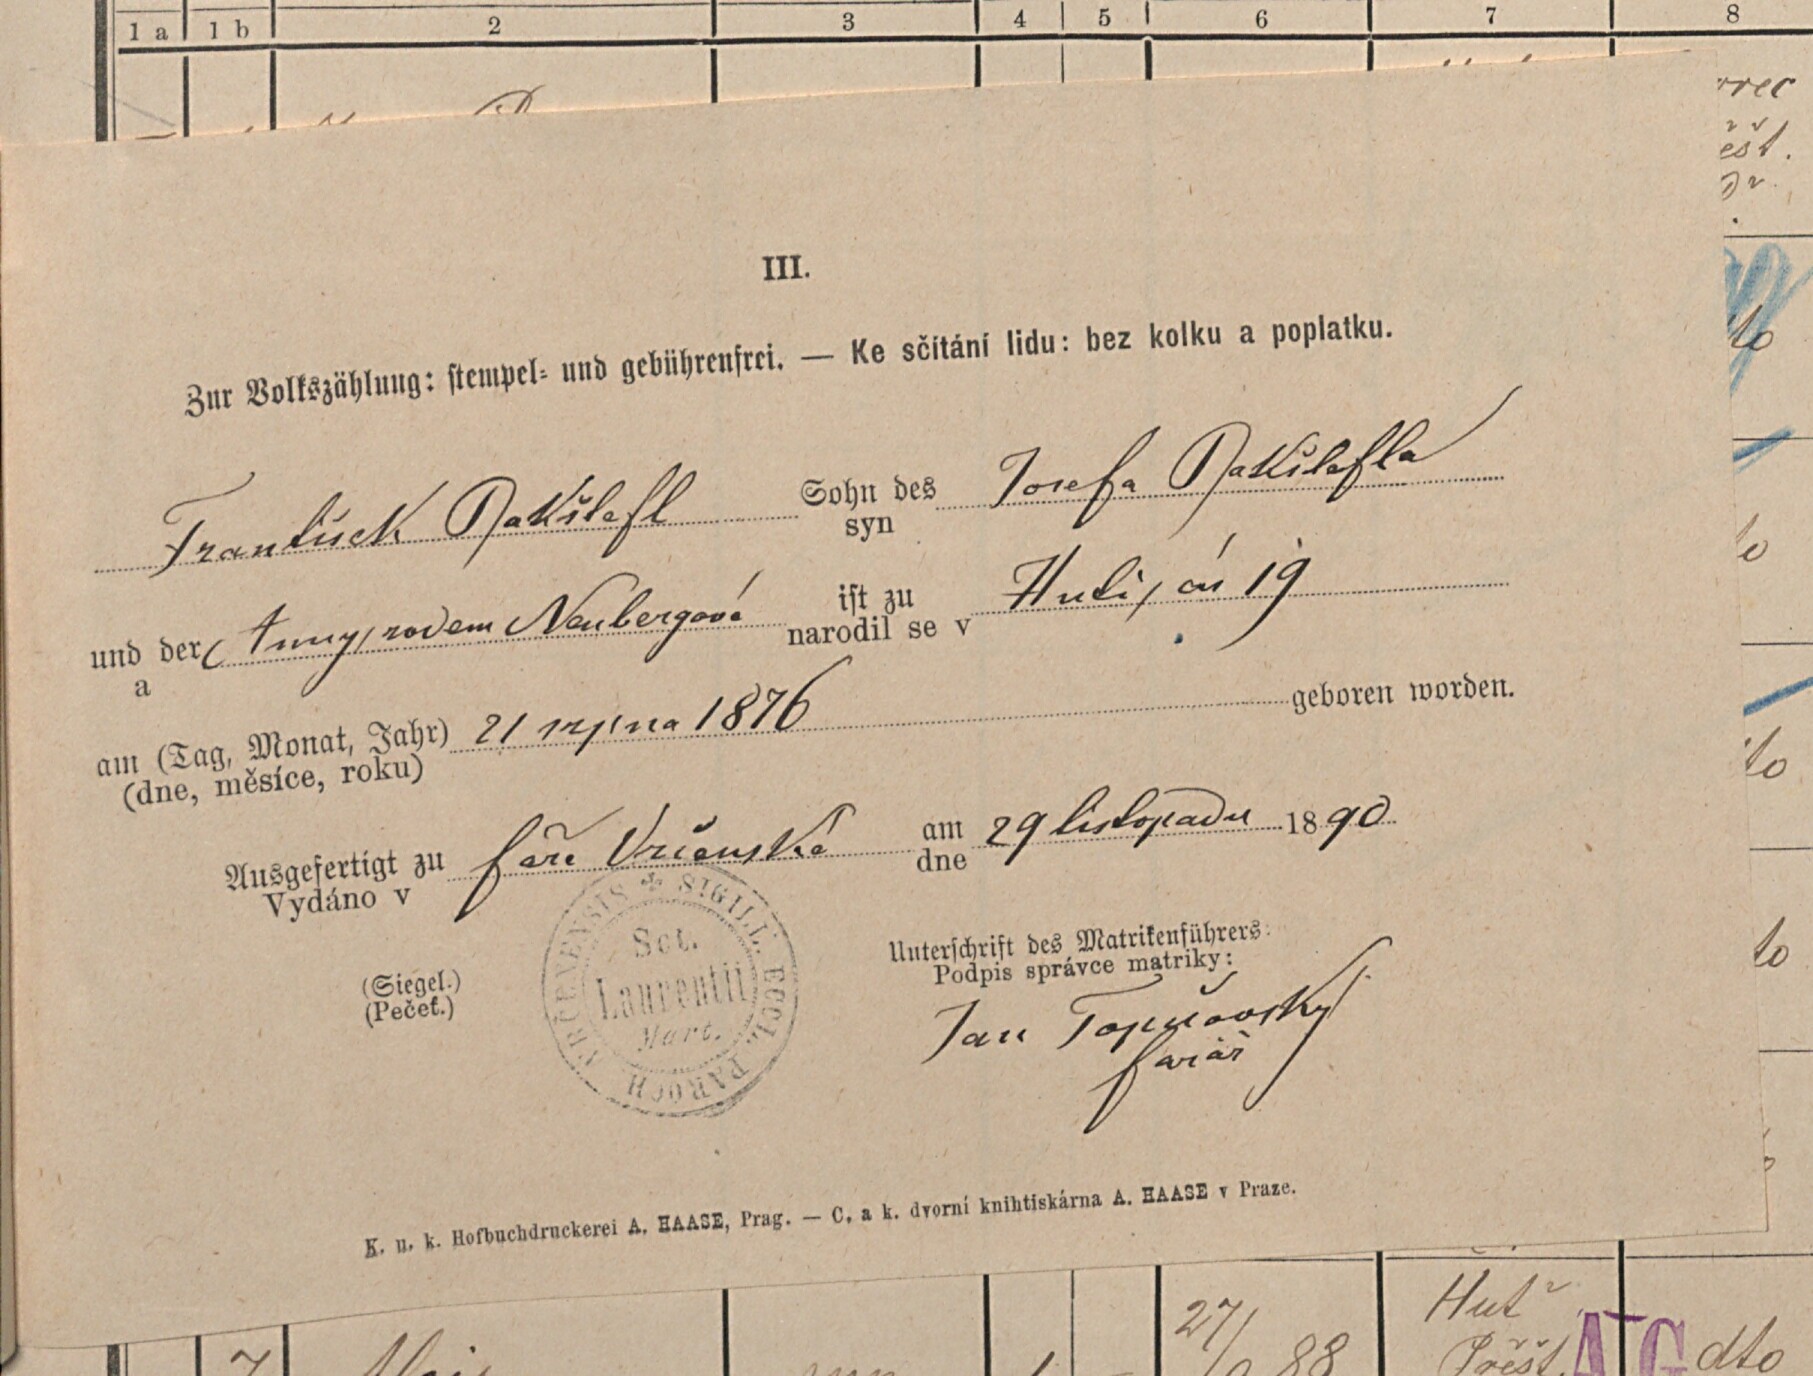 1 a 1 b 2 3 4 5 6 7 8
III.
Zur Volkszählung: stempel- und gebührenfrei. — Ke sčítání lidu: bez kolku a poplatku.
František Rakšlefl Sohn des Josefa Rakšlefla
syn
und der Anny, rodem Neubergové ist zu Huti, čís 19
a narodil se v
am (Tag, Monat, Jahr) 21 srpna 1876 geboren worden.
(dne, měsíce, roku)
Ausgefertigt zu faře Vrčenské am 29 listopadu 1890
Vydáno v dne
SIGILL. ECCL. PAROCH VRCENENSIS
Sct.
Laurentii
Mart.
(Siegel.)
(Pečeť.)
Unterschrift des Matrikenführers:
Podpis správce matriky:
Jan
farář
K. u. k. Hofbuchdruckerei A. HAASE, Prag. — C. a k. dvorní knihtiskárna A. HAASE v Praze.
27/ Huť
7 88 Přešt. AG dto